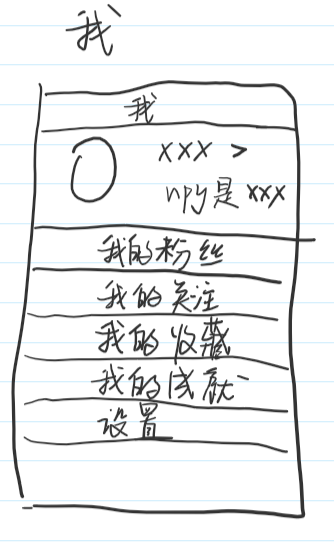 我
我
xxx >
npy是xxx
我的粉丝
我的关注
我的收藏
我的成就
设置